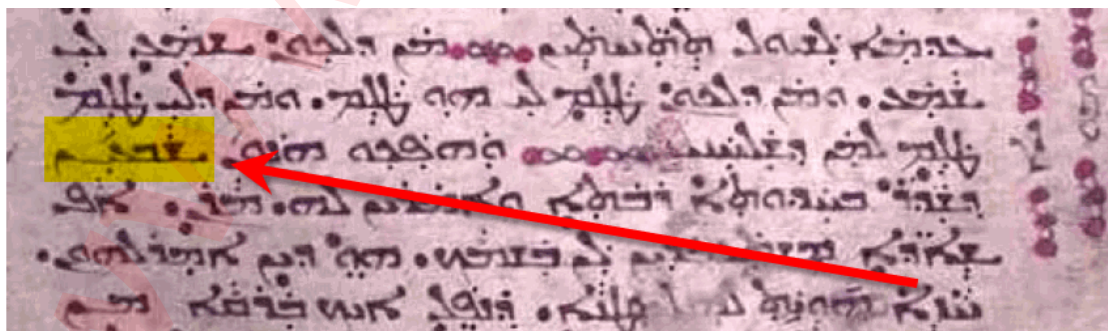 ܥܕܡܐ ܠܫܝܘܠ ܬܬܬܚܬܝܢ ܡܢ ܕܠܟܘܢ ܫܡܥ ܠܝ
ܫܡܥ. ܘܡܢ ܕܠܟܘܢ ܛܠܡ ܠܝ ܗܘ ܛܠܡ. ܘܡܢ ܕܠܝ ܛܠܡ
ܛܠܡ ܠܡܢ ܕܫܠܚܢܝ ܘܗܦܟܘ ܗܢܘܢ ܫܒܥܝܢ
ܕܫܕܪ ܒܚܕܘܬܐ ܪܒܬܐ ܘܐܡܪܝܢ ܠܗ. ܡܪܢ. ܐܦ
ܫܐܕܐ ܡܫܬܥܒܕܝܢ ܠܢ ܒܫܡܟ. ܗܘ ܕܝܢ ܐܡܪ ܠܗܘܢ.
ܚܙܐ ܗܘܝܬ ܠܗ ܠܣܛܢܐ. ܕܢܦܠ ܐܝܟ ܒܪܩܐ ܡܢ